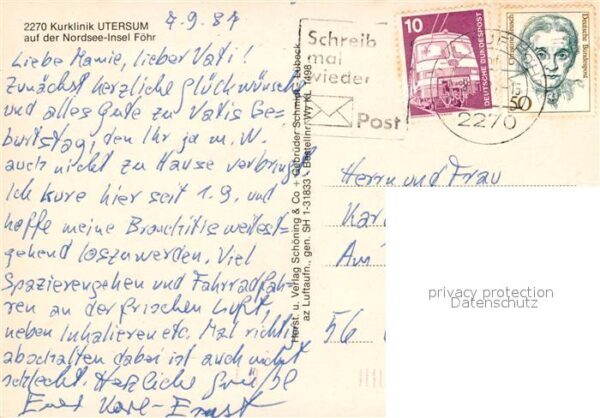 2270 Kurklinik UTERSUM
auf der Nordsee-Insel Föhr
7.9.87
Liebe Mamie, lieber Vati!
Zunächst herzliche Glückwünsche
und alles Gute zu Vatis Ge-
burtstag, den Ihr ja m. W.
auch nicht zu Hause verbringt.
Ich kure hier seit 1.9. und
hoffe meine Bronchitis weitest-
gehend loszuwerden. Viel
Spazierengehen und Fahrradfah-
ren an der frischen Luft,
neben Inhalieren etc. Mal richtig
abschalten dabei ist auch nicht
schlecht. Herzliche Grüße
Euer Karl-Ernst
Horst. u. Verlag Schöning & Co + Gebrüder Schmidt, Lübeck
az Luftaufn., gen. SH 1-31833 Bestellnr. Wy KL 1498
Schreib
mal
wieder
Post
10
DEUTSCHE BUNDESPOST
Deutsche Bundespost
50
2270
Herrn und Frau
Kar
Am
56
privacy protection
Datenschutz